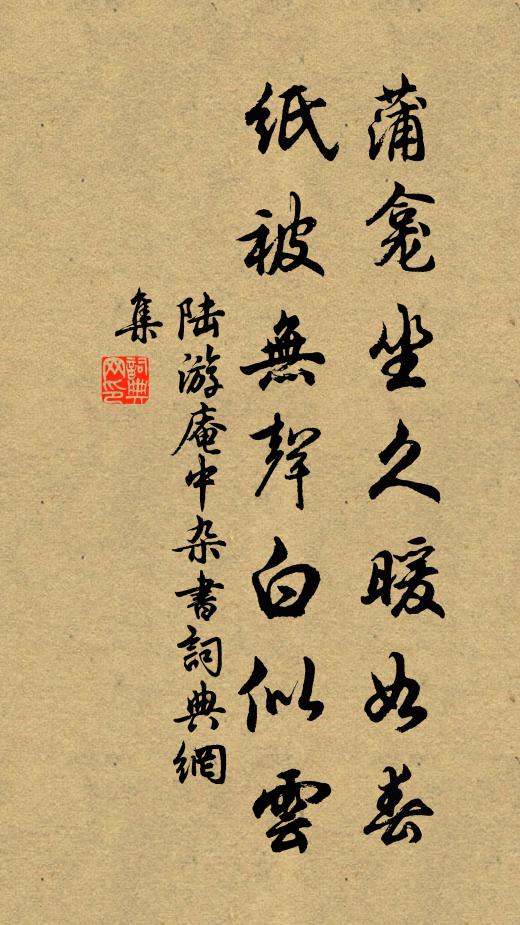 蒲龕坐久暖如春
紙被無聲白似雲
陸游庵中杂書詞典網
集
詞典
网印